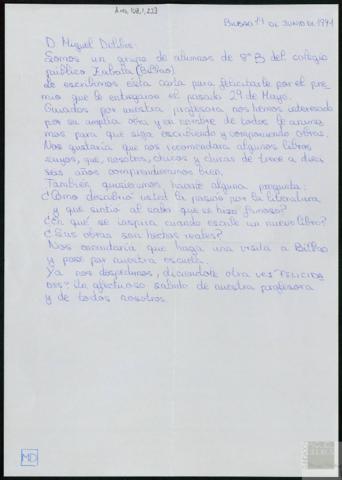 BILBAO 14 DE JUNIO DE 1991
D. Miguel Delibes:
Somos un grupo de alumnos de 8º B del colegio
público Zabala (Bilbao).
Le escribimos esta carta para felicitarte por el pre-
mio que le entregaron el pasado 29 de Mayo.
Guiados por nuestra profesora nos hemos interesado
por su amplia obra y en nombre de todos le anima-
mos para que siga escribiendo y componiendo obras.
Nos gustaría que nos recomendara algunos libros
suyos, que, nosotros, chicos y chicas de trece a dieci
seis años comprendieramos bien.
También quisieramos hacerle alguna pregunta:
¿Cómo descubrió usted la pasion por la literatura,
y que sintio al saber que se hizo famoso?
¿En qué se inspira cuando escribe un nuevo libro?
¿Sus obras son hechos reales?
Nos encantaría que haga una visita a Bilbao
y pase por nuestra escuela.
Ya nos despedimos, diciendole otra vez FELICIDA
DES. Un afectuoso saludo de nuestra profesora
y de todos nosotros.
MD